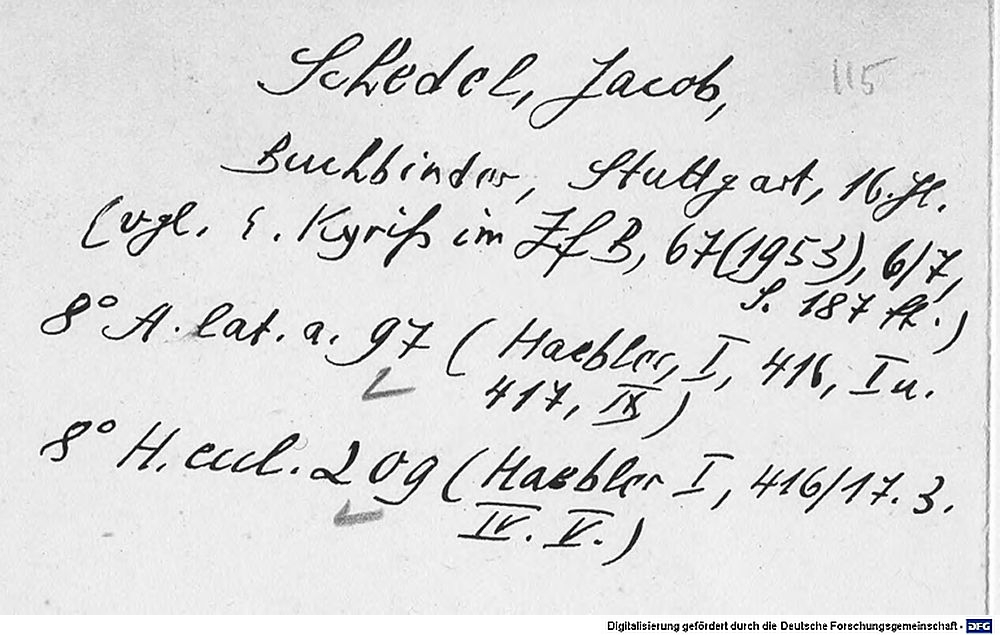 Schedel, Jacob,
115
Buchbinder, Stuttgart, 16. Jh.
(vgl. E. Kyriß im ZfB, 67(1953), 6/7,
S. 187 ff.)
8° A. lat. a. 97 (Haebler, I, 416, I u.
417, IX)
8° H. eccl. 209 (Haebler I, 416/17. 3.
IV. V.)
Digitalisierung gefördert durch die Deutsche Forschungsgemeinschaft - DFG